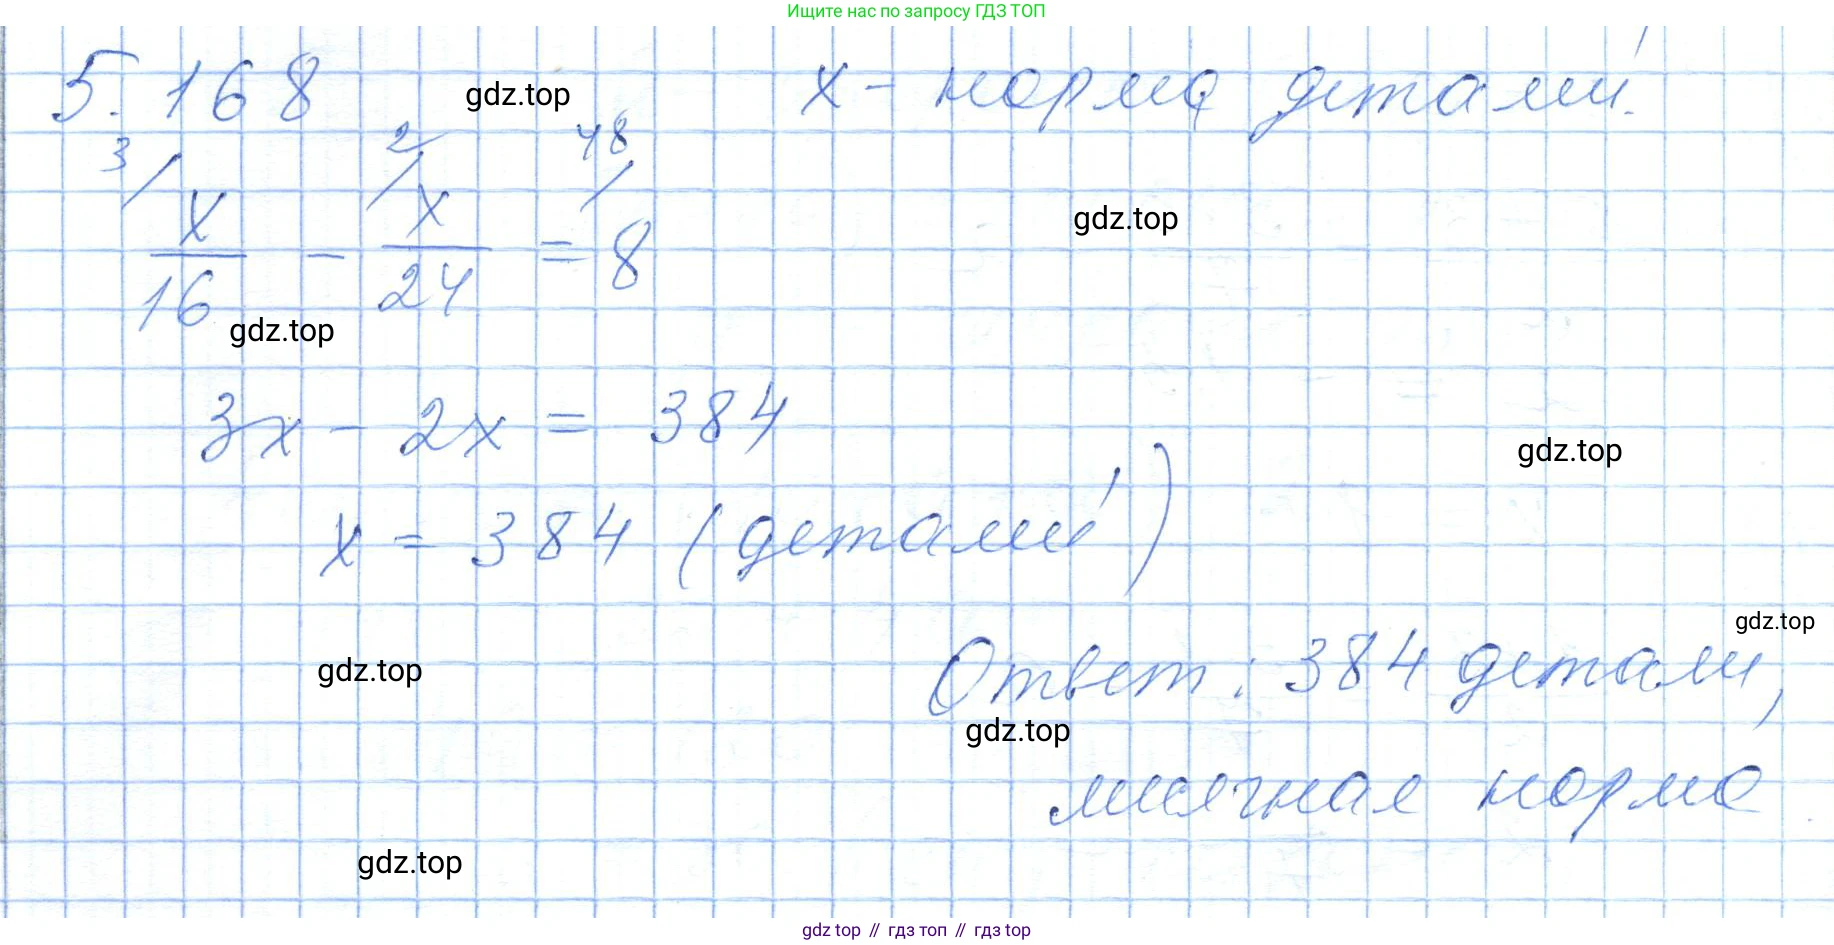 Ищите нас по запросу ГДЗ ТОП
5.168 gdz.top x - норма деталей.
3/ 2/ 48/
x/16 - x/24 = 8
gdz.top
gdz.top
3x - 2x = 384
gdz.top
x = 384 (деталей)
gdz.top
Ответ: 384 детали,
gdz.top
gdz.top
норма
gdz.top
gdz top // гдз топ // гдз top